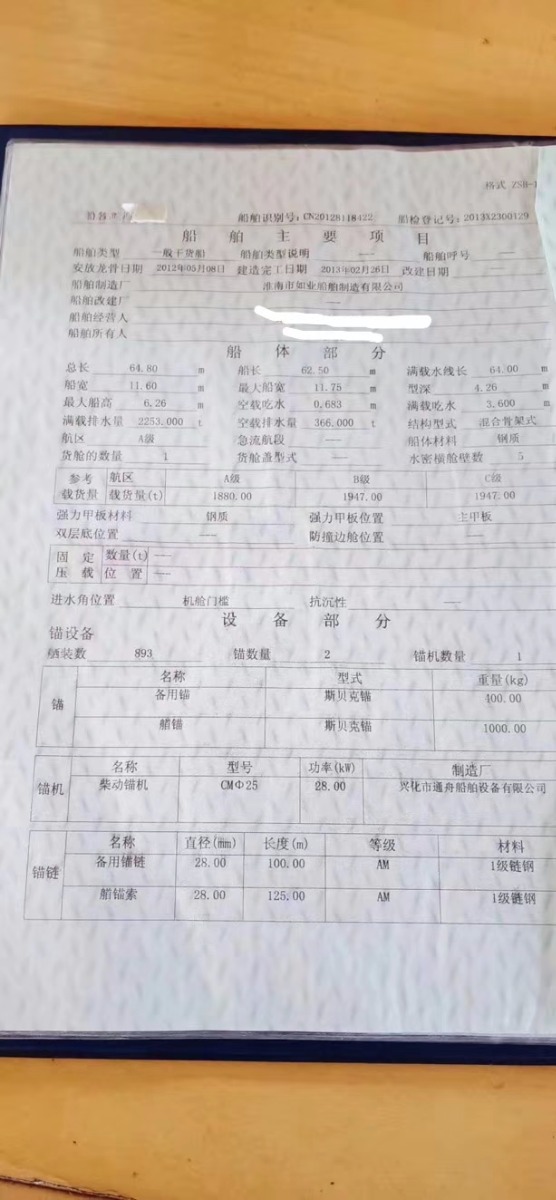 格式 ZSH-
船舶识别号：CN20128118422 船检登记号：2013X2300129
船舶主要项目
船舶类型 一般干货船 船舶类型说明 —— 船舶呼号
安放龙骨日期 2012年05月08日 建造完工日期 2013年02月26日 改建日期 ——
船舶制造厂 淮南市如业船舶制造有限公司
船舶改建厂 ——
船舶经营人
船舶所有人
船体部分
总长 64.80 m 船长 62.50 m 满载水线长 64.00 m
船宽 11.60 m 最大船宽 11.75 m 型深 4.26 m
最大船高 6.26 m 空载吃水 0.683 m 满载吃水 3.600 m
满载排水量 2253.000 t 空载排水量 366.000 t 结构型式 混合骨架式
航区 A级 急流航段 —— 船体材料 钢质
货舱的数量 1 货舱盖型式 —— 水密横舱壁数 5
参考载货量 航区 A级 B级 C级
载货量(t) 1880.00 1947.00 1947.00
强力甲板材料 钢质 强力甲板位置 主甲板
双层底位置 —— 防撞边舱位置 ——
固定压载 数量(t) ——
位置 ——
进水角位置 机舱门槛 抗沉性 ——
设备部分
锚设备
舾装数 893 锚数量 2 锚机数量 1
锚 名称 型式 重量(kg)
备用锚 斯贝克锚 400.00
艏锚 斯贝克锚 1000.00
锚机 名称 型号 功率(kW) 制造厂
柴动锚机 CMΦ25 28.00 兴化市通舟船舶设备有限公司
锚链 名称 直径(mm) 长度(m) 等级 材料
备用锚链 28.00 100.00 AM 1级链钢
艏锚索 28.00 125.00 AM 1级链钢